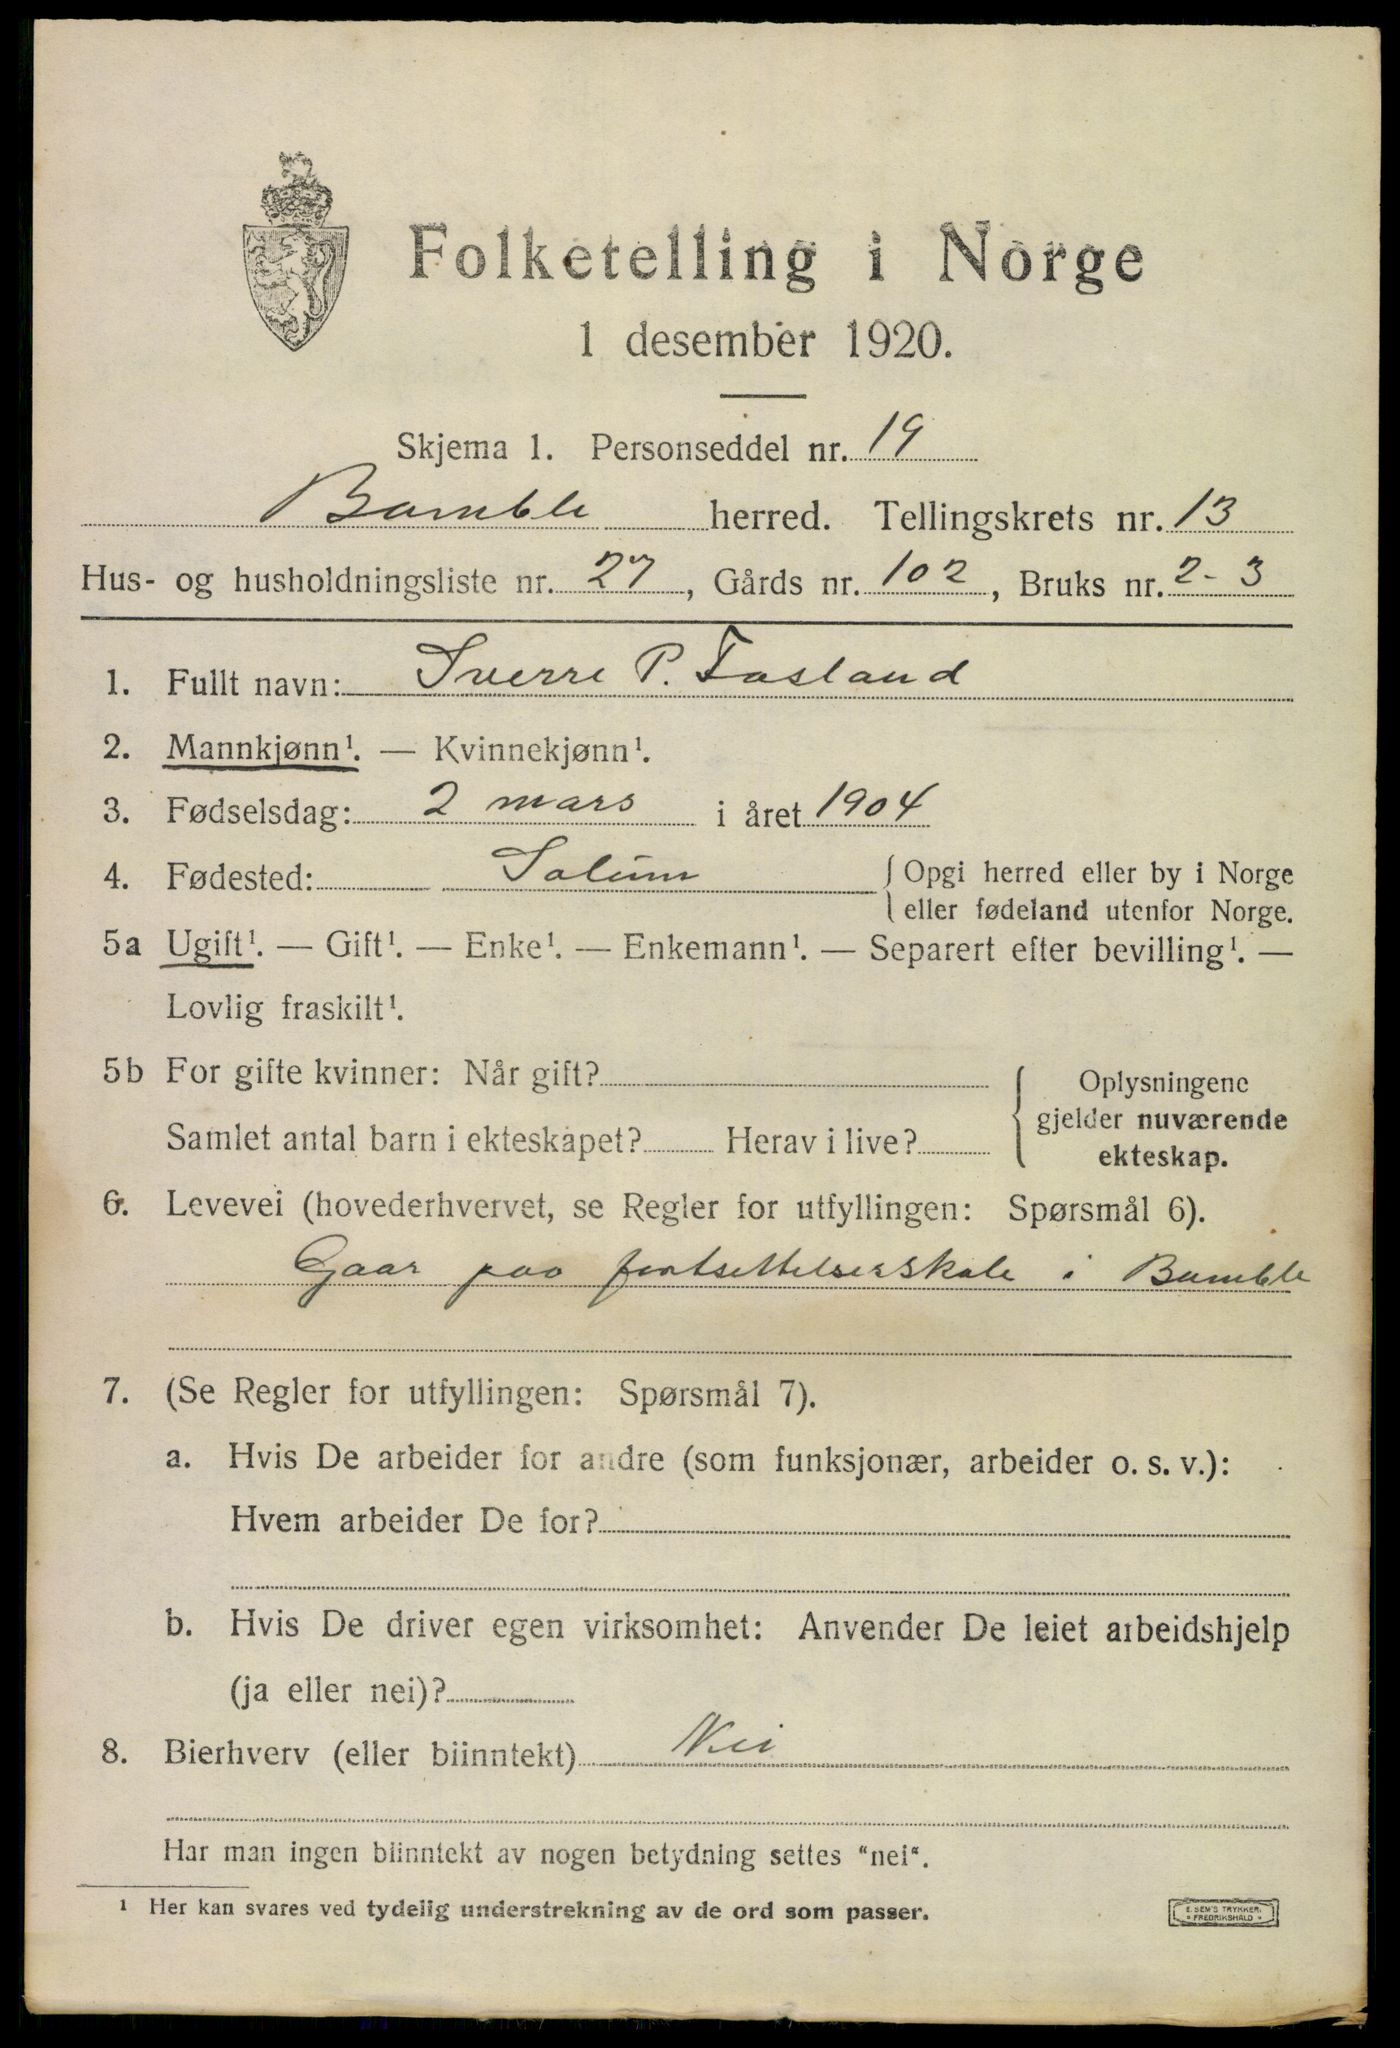 Folketelling i Norge
1 desember 1920.
Skjema 1. Personseddel nr. 19
Bamble herred. Tellingskrets nr. 13
Hus- og husholdningsliste nr. 27, Gårds nr. 102, Bruks nr. 2-3
1. Fullt navn: Sverre P. Fosland
2. Mannkjønn¹. — Kvinnekjønn¹.
3. Fødselsdag: 2 mars i året 1904
4. Fødested: Solum { Opgi herred eller by i Norge
eller fødeland utenfor Norge.
5a Ugift¹. — Gift¹. — Enke¹. — Enkemann¹. — Separert efter bevilling¹. —
Lovlig fraskilt¹.
5b For gifte kvinner: Når gift?
Samlet antal barn i ekteskapet? Herav i live?
{ Oplysningene
gjelder nuværende
ekteskap.
6. Levevei (hovederhvervet, se Regler for utfyllingen: Spørsmål 6).
Gaar paa fortsettelsesskole i Bamble
7. (Se Regler for utfyllingen: Spørsmål 7).
a. Hvis De arbeider for andre (som funksjonær, arbeider o. s. v.):
Hvem arbeider De for?
b. Hvis De driver egen virksomhet: Anvender De leiet arbeidshjelp
(ja eller nei)?
8. Bierhverv (eller biinntekt) Nei
Har man ingen biinntekt av nogen betydning settes "nei".
¹ Her kan svares ved tydelig understrekning av de ord som passer.
E. SEM'S TRYKKER.
FREDRIKSHALD